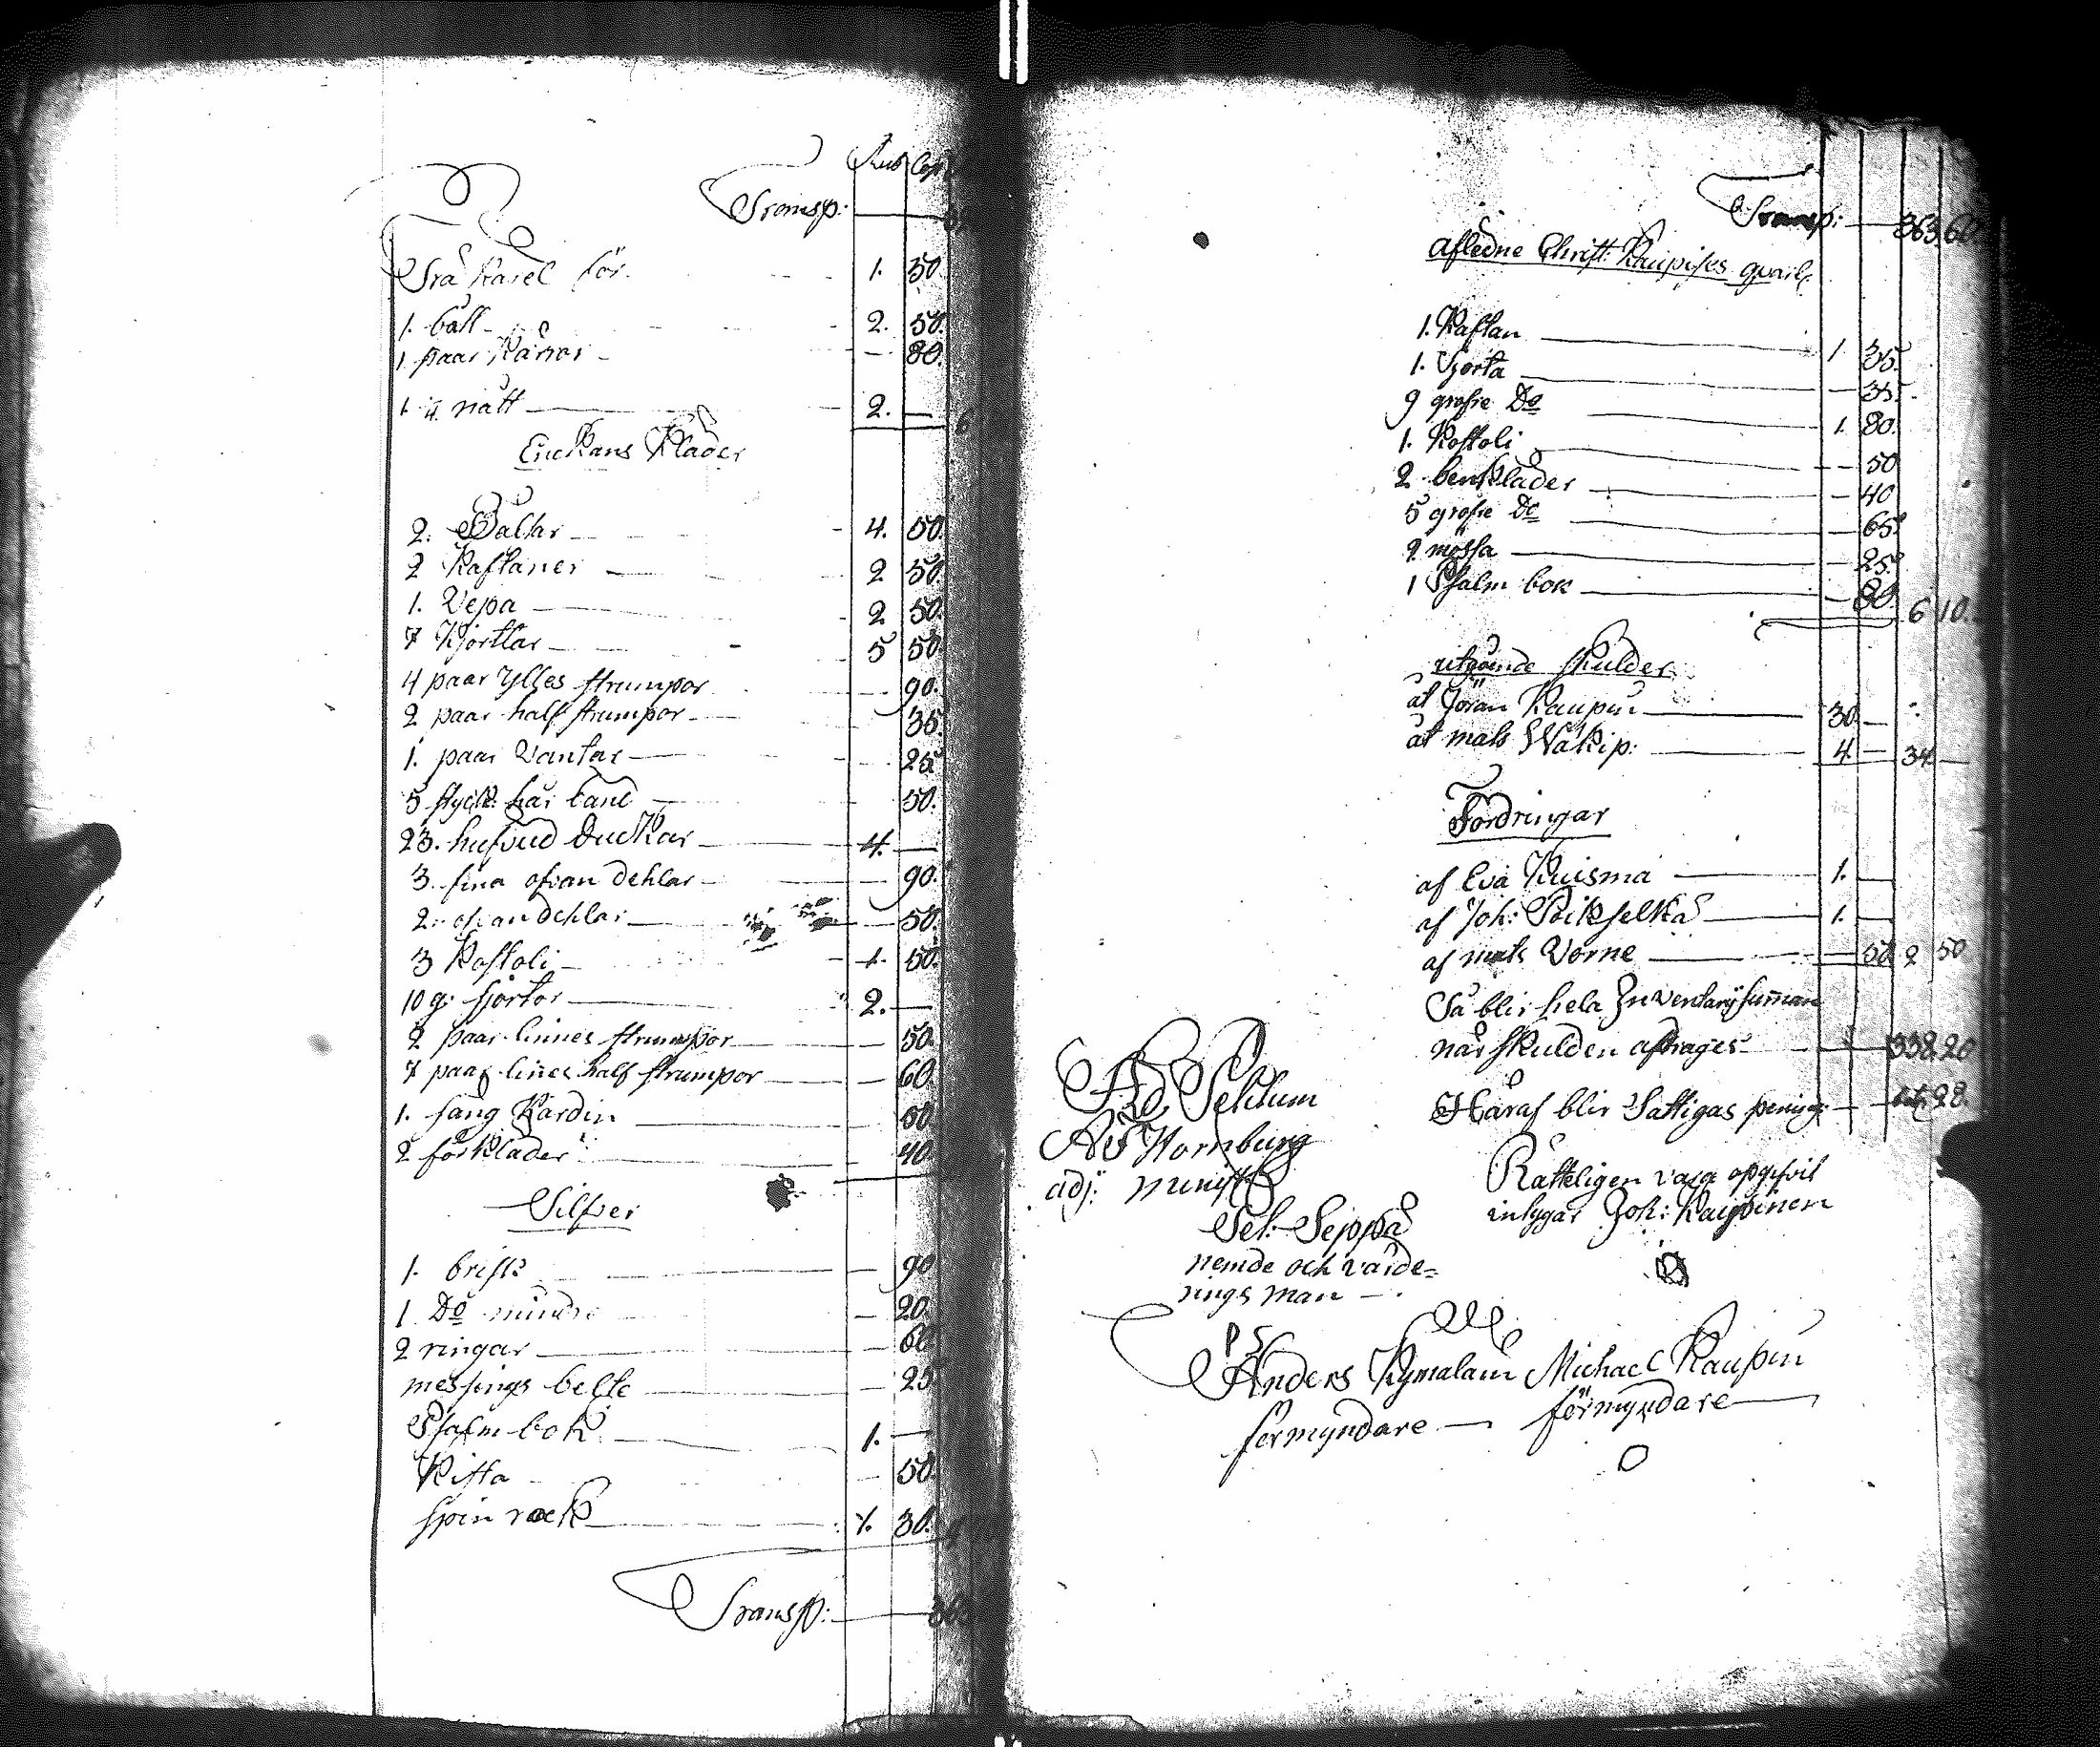 Rub Cop
Transp:
Trå Karel för 1. 50.
1. bått 2. 50.
1 paar Kärror 80.
1. nått 2.
Enckans Kläder
2. Bältar 4. 50.
2 Kaftaner 2 50.
1. Vepa 2 50.
7 Kjortlar 5 50.
4 paar ylles strumpor 90.
2 paar half strumpor 35.
1. paar Vantar 25
5 styck: hår band 50.
23. hufvud duckar 4.
3. fina ofvan dehlar 90.
2. ofvan dehlar 50.
3 Kostoli 1. 50.
10 g: sjortor 2.
2 paar linnes strumpor 50.
7 paar linnes half strumpor 60.
1. säng Kardin 50.
2 förkläder 40.
Silfver
1. brisk 90
1 Do mindre 20.
2 ringar 60
messings belte 25
Psalm bok 1.
Kista 50.
spin rock 1. 30.
Transp:
Transp: 363 60
afledne Christ: Kaupises qvarl:
1. Kaftan 1 35.
1. Sjorta 35.
9 grofre Do 1. 80.
1. Kostoli 50
2 benkläder 40
5 grofre Do 65.
2 mössa 25.
1 Psalm bok 80. 6 10.
utgående skulder
åt Jöran Kaupin 30
åt mats Wäkip: 4 34
Fordringar
af Eva Kuisma 1.
af Joh: Poikselkä 1.
af mats Vorne 50 2 50
Så blir hela Inventarij summan
när skulden aftrages 338. 20
Häraf blir Fattigas pening: 28.
Rätteligen vara opgifvit
intygar Joh: Kaupinen
Ad Sehlum
Hornburg
adj: minist
Sel: Seppä
nemde och värde=
rings man
PS
Anders Kymalain Michael Kaupin
formyndare förmyndare